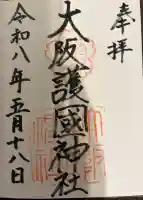 奉拝
大阪護國神社
令和八年五月十八日